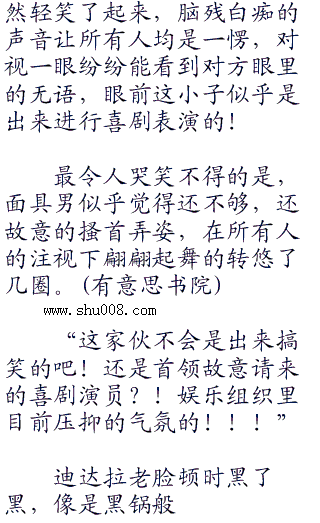 然轻笑了起来，脑残白痴的
声音让所有人均是一愣，对
视一眼纷纷能看到对方眼里
的无语，眼前这小子似乎是
出来进行喜剧表演的！
最令人哭笑不得的是，
面具男似乎觉得还不够，还
故意的搔首弄姿，在所有人
的注视下翩翩起舞的转悠了
几圈。(有意思书院)
www.shu008.com
“这家伙不会是出来搞
笑的吧！还是首领故意请来
的喜剧演员？！娱乐组织里
目前压抑的气氛的！！！”
迪达拉老脸顿时黑了
黑，像是黑锅般